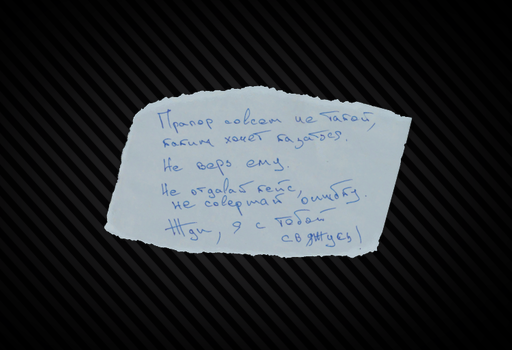 Прапор совсем не такой,
каким хочет казаться.
Не верь ему.
Не отдавай кейс,
не совершай ошибку.
Жди, я с тобой
свяжусь!